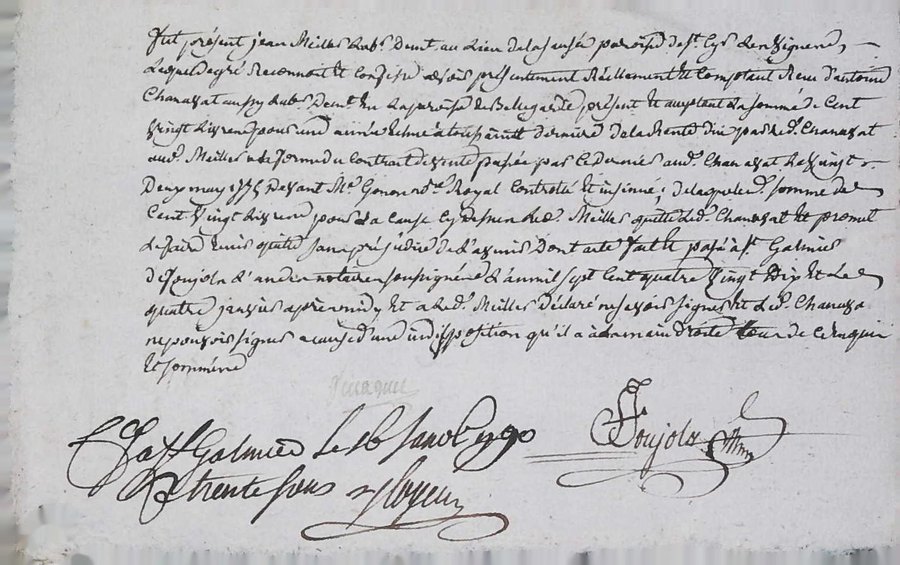 fut présent jean Meiller Lab.r Demt. au Lieu dela paroisse de st. Cyr
Lequel degré Reconnoit et Confesse avoir présentement Réellement et Comptant Reçu d'antoine
Chanavat aussy Lab.r Demt. en La paroisse de Bellegarde présent et acceptant La somme de Cent
vingt Livres pour une année derniere dela Rente Due par Led. Chanavat
aud. Meiller en La forme du Contrat de vente passée par Ce Dernier aud. Chanavat Le vingt
Deux may 1775 Devant Me. Gonon no.re Royal Controlé et insinué; delaquelle d. somme de
Cent vingt Livres pour La Cause Cy dessus Led. Meiller quitte Led. Chanavat et promet
Le faire tenir quitte sans préjudice de Dont acte fait et passé à st. Galmier
de Soujola L'ancien notaire soussigné L'an mil sept Cent quatre vingt Dix et Le
quatre janvier après midy et a Led. Meiller Déclaré ne savoir signer et Led. Chanavat
ne pouvoir signer a cause d'une indisposition qu'il a à La main Droite de Ce Requis
Et sommé
a st Galmier Le 16 janv 1790
trente sous
Soujola